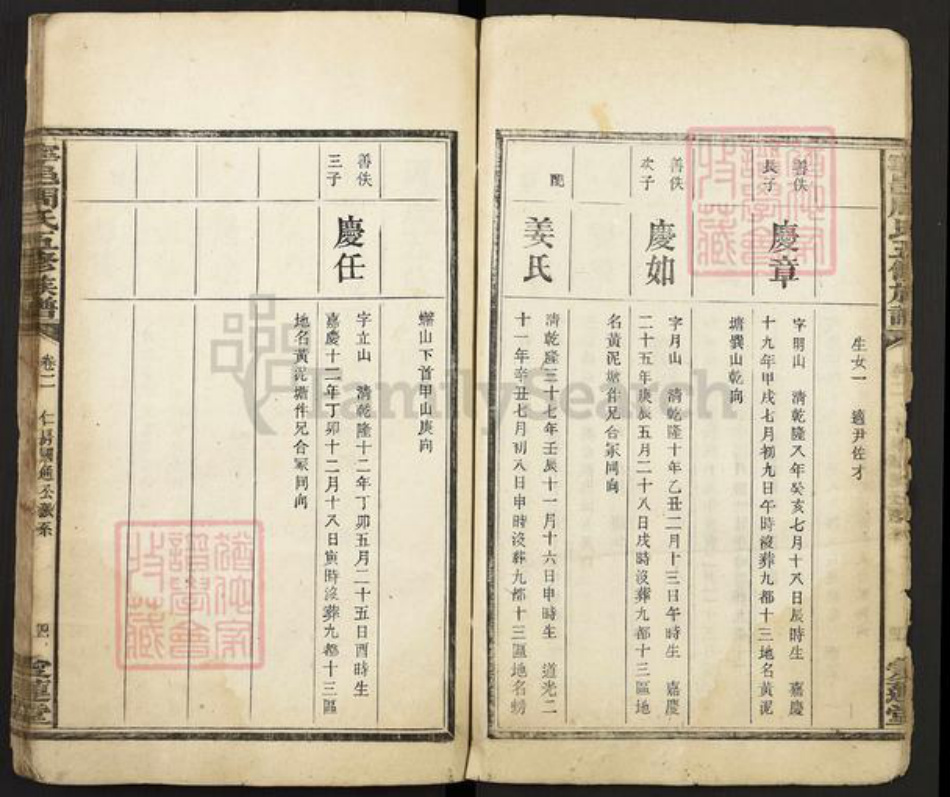 生女一 適尹佐才
善佚
長子
慶章
字明山 清乾隆八年癸亥七月十八日辰時生 嘉慶
十九年甲戌七月初九日午時沒葬九都十三地名黃泥
塘
山乾向
善佚
次子
慶如
字月山 清乾隆十年乙丑二月十三日午時生 嘉慶
二十五年庚辰五月二十八日戌時沒葬九都十三區地
名黃泥塘伴兄合冢同向
配
姜氏
清乾隆三十七年壬辰十一月十六日申時生 道光二
十一年辛丑七月初八日申時沒葬九都十三區地名螃
蠏山下首甲山庚向
善佚
三子
慶任
字立山 清乾隆十二年丁卯五月二十五日酉時生
嘉慶十二年丁卯十二月十八日寅時沒葬九都十三區
地名黃泥塘伴兄合冢同向
周氏五修族譜
卷二
愛蓮堂
FamilySearch